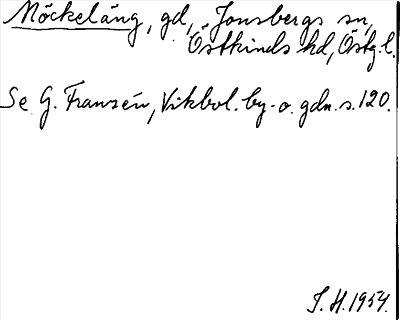 Möckeläng, gd, Jonsbergs sn,
Östkinds hd, Östg.l.
Se G. Franzén, Vikbol. by- o. gdn. s. 120.
I. H. 1954.